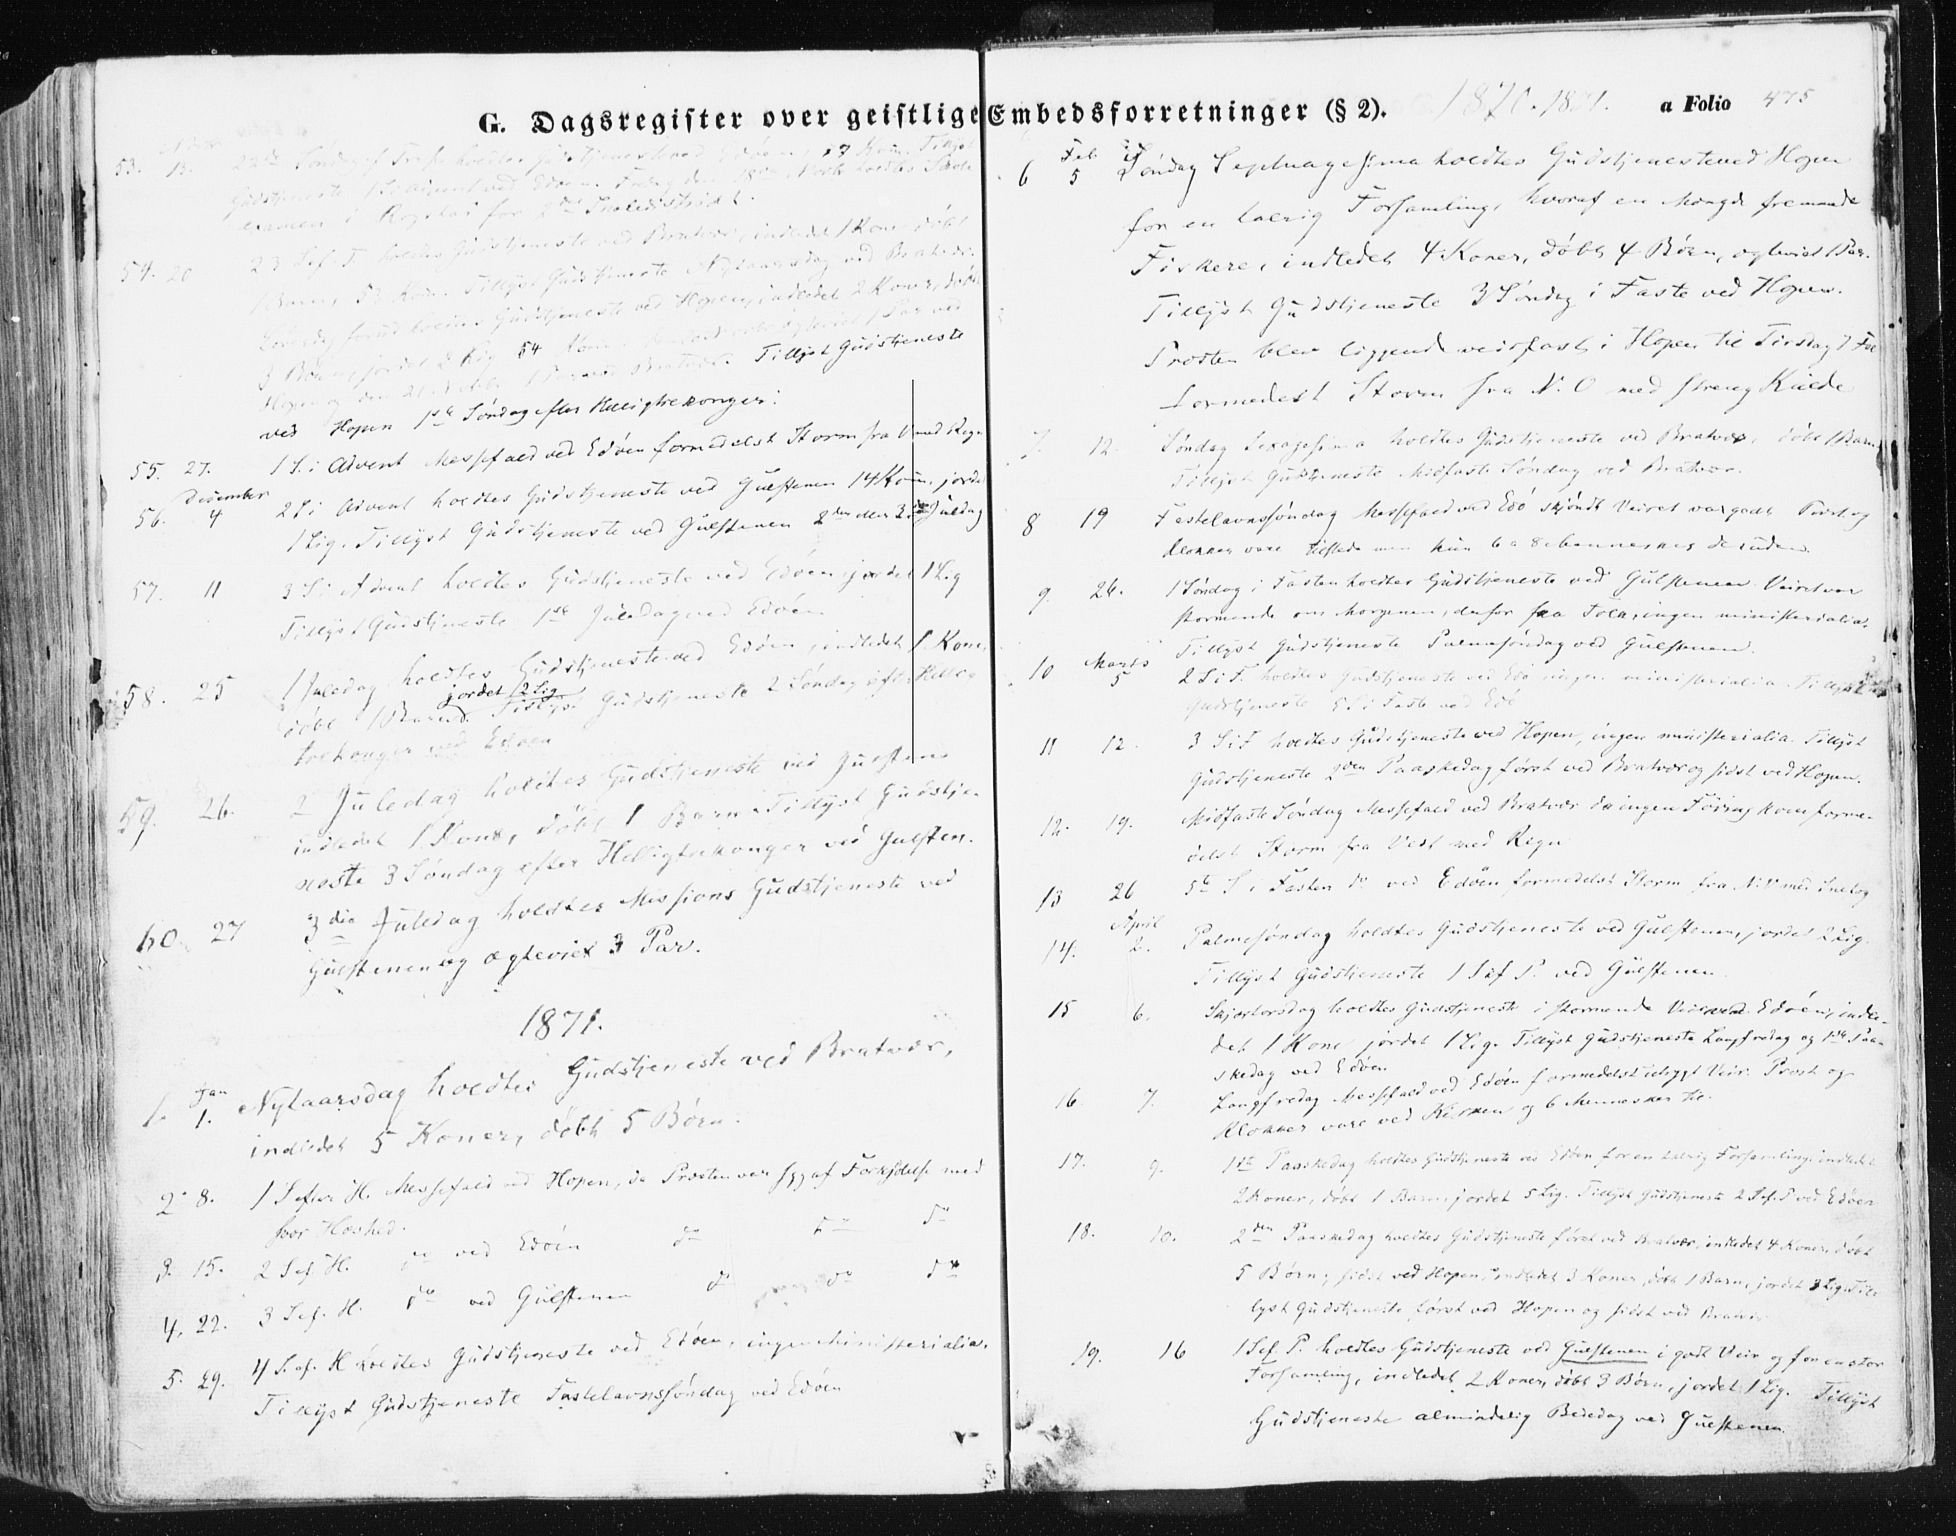 G. Dagsregister over geistlige Embedsforretninger (§ 2). 1870. 1871. a Folio 475
53. 13. 22de Søndag ef. Tref. holdtes Gudstjeneste ved Edøen, Tillyst
Gudstjeneste 1 S. i Advent ved Edøen. Fredag den 18de holdtes Skole
examen i for 2det Skoledistrikt.
54. 20 23 S. ef. T. holdtes Gudstjeneste ved Bratvær, indledet 1 Kone døbt
1 Barn, 53 Kom. Tillyst Gudstjeneste Nytaarsdag ved Bratvær.
Løverdag holdtes Gudstjeneste ved Hopen, indledet 2 Koner, døbt
3 Børn, jordet 2 Lig 54 Kom.
Hopen og den 21 Tillyst Gudstjeneste
ved Hopen 1ste Søndag efter Helligtrekonger.
55. 27. 1 S. i Advent Messefald ved Edøen formedelst Storm fra V med Regn
December
56. 4 2 S i Advent holdtes Gudstjeneste ved Gulstenen 14 Kom. jordet
1 Lig. Tillyst Gudstjeneste ved Gulstenen 2den eller 3die Juledag
57. 11 3 S. i Advent holdtes Gudstjeneste ved Edøen jordet 1 Lig
Tillyst Gudstjeneste 1ste Juledag ved Edøen
58. 25 1 Juledag holdtes Gudstjeneste ved Edøen, indledet 1 Kone,
jordet 2 Lig
døbt 1 Barn. Tillyst Gudstjeneste 2 Søndag efter Hellig
trekonger ved Edøen
59. 26. 2 Juledag holdtes Gudstjeneste ved Gulsten
indledet 1 Kone, døbt 1 Barn. Tillyst Gudstje-
neste 3 Søndag efter Helligtrekonger ved Gulsten.
60. 27 3die Juledag holdtes Missions Gudstjeneste ved
Gulstenen og ægteviet 3 Par.
1871.
1. Jan 1. Nytaarsdag holdtes Gudstjeneste ved Bratvær,
indledet 5 Koner, døbt 5 Børn.
2. 8. 1 S. efter H. Messefald ved Hopen, da Provsten var syg af Forkjølelse med
svær Hæshed.
3. 15. 2 S. ef. H. do ved Edøen do do do
4. 22. 3 S. ef. H. do ved Gulstenen do do do
5. 29. 4 S. ef. H holdtes Gudstjeneste ved Edøen, ingen Ministerialia.
Tillyst Gudstjeneste Fastelavnssøndag ved Edøen
Feb
6 5 Søndag Septuagesima holdtes Gudstjeneste ved Hopen
for en talrig Forsamling, hvoraf en Mængde fremmede
Fiskere, indledet 4 Koner, døbt 4 Børn, ægteviet 1 Par.
Tillyst Gudstjeneste 3 Søndag i Faste ved Hopen.
Provsten blev liggende veirfast i Hopen til Tirsdag 7 Feb
formedelst Storm fra N.O med streng Kulde
7. 12. Søndag Sexagesima holdtes Gudstjeneste ved Bratvær, døbt 1 Barn,
Tillyst Gudstjeneste Midfaste Søndag ved Bratvær.
8 19 Fastelavnssøndag Messefald ved Edø skjøndt Veiret var godt Provst og
Klokker vare tilstede men kun 6 a 8 Mennesker desuden.
9. 26. 1 Søndag i Fasten holdtes Gudstjeneste ved Gulstenen Veiret var
stormende om Morgenen, derfor faa Folk, ingen ministerialia.
Tillyst Gudstjeneste Palmesøndag ved Gulstenen.
Marts
10 5 2 S i F. holdtes Gudstjeneste ved Edø ingen ministerialia. Tillyst
Gudstjeneste 5 S i Faste ved Edø
11 12. 3 S i F holdtes Gudstjeneste ved Hopen, ingen ministerialia. Tillyst
Gudstjeneste 2den Paaskedag først ved Bratvær og sidst ved Hopen.
12. 19. Midfaste Søndag Messefald ved Bratvær da ingen Føring kom forme-
delst Storm fra Vest med Regn
13 26 5te S i Fasten do ved Edøen formedelst Storm fra N.V med Snefog
April
14. 2. Palmesøndag holdtes Gudstjeneste ved Gulstenen, jordet 2 Lig.
Tillyst Gudstjeneste 1 S ef P. ved Gulstenen.
15 6. Skjærtorsdag holdtes Gudstjeneste i stormende Veir ved Edøen, indle-
det 1 Kone jordet 1 Lig. Tillyst Gudstjeneste Langfredag og 1ste Paa-
skedag ved Edøen
16. 7. Langfredag Messefald ved Edøen formedelst utrygt Veir. Provst og
Klokker vare ved Kirken og 6 Mennesker til.
17. 9. 1ste Paaskedag holdtes Gudstjeneste ved Edøen for en talrig Forsamling. indledet
2 Koner, døbt 1 Barn, jordet 5 Lig. Tillyst Gudstjeneste 2 S. ef. P ved Edøen
18. 10. 2den Paaskedag holdtes Gudstjeneste først ved Bratvær, indledet 4 Koner, døbt
5 Børn; sidst ved Hopen, indledet 3 Koner, døbt 1 Barn, jordet 3 Lig. Til-
lyst Gudstjeneste først ved Hopen og sidst ved Bratvær
19. 16 1 S ef. P. holdtes Gudstjeneste ved Gulstenen i godt Veir og for en stor
Forsamling, indledet 2 Koner, døbt 3 Børn, jordet 1 Lig. Tillyst
Gudstjeneste almindelig Bededag ved Gulstenen